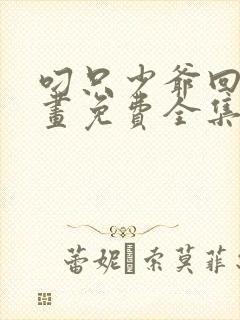 叼只少爷回
畫免費全集
蕾妮·索莫菲